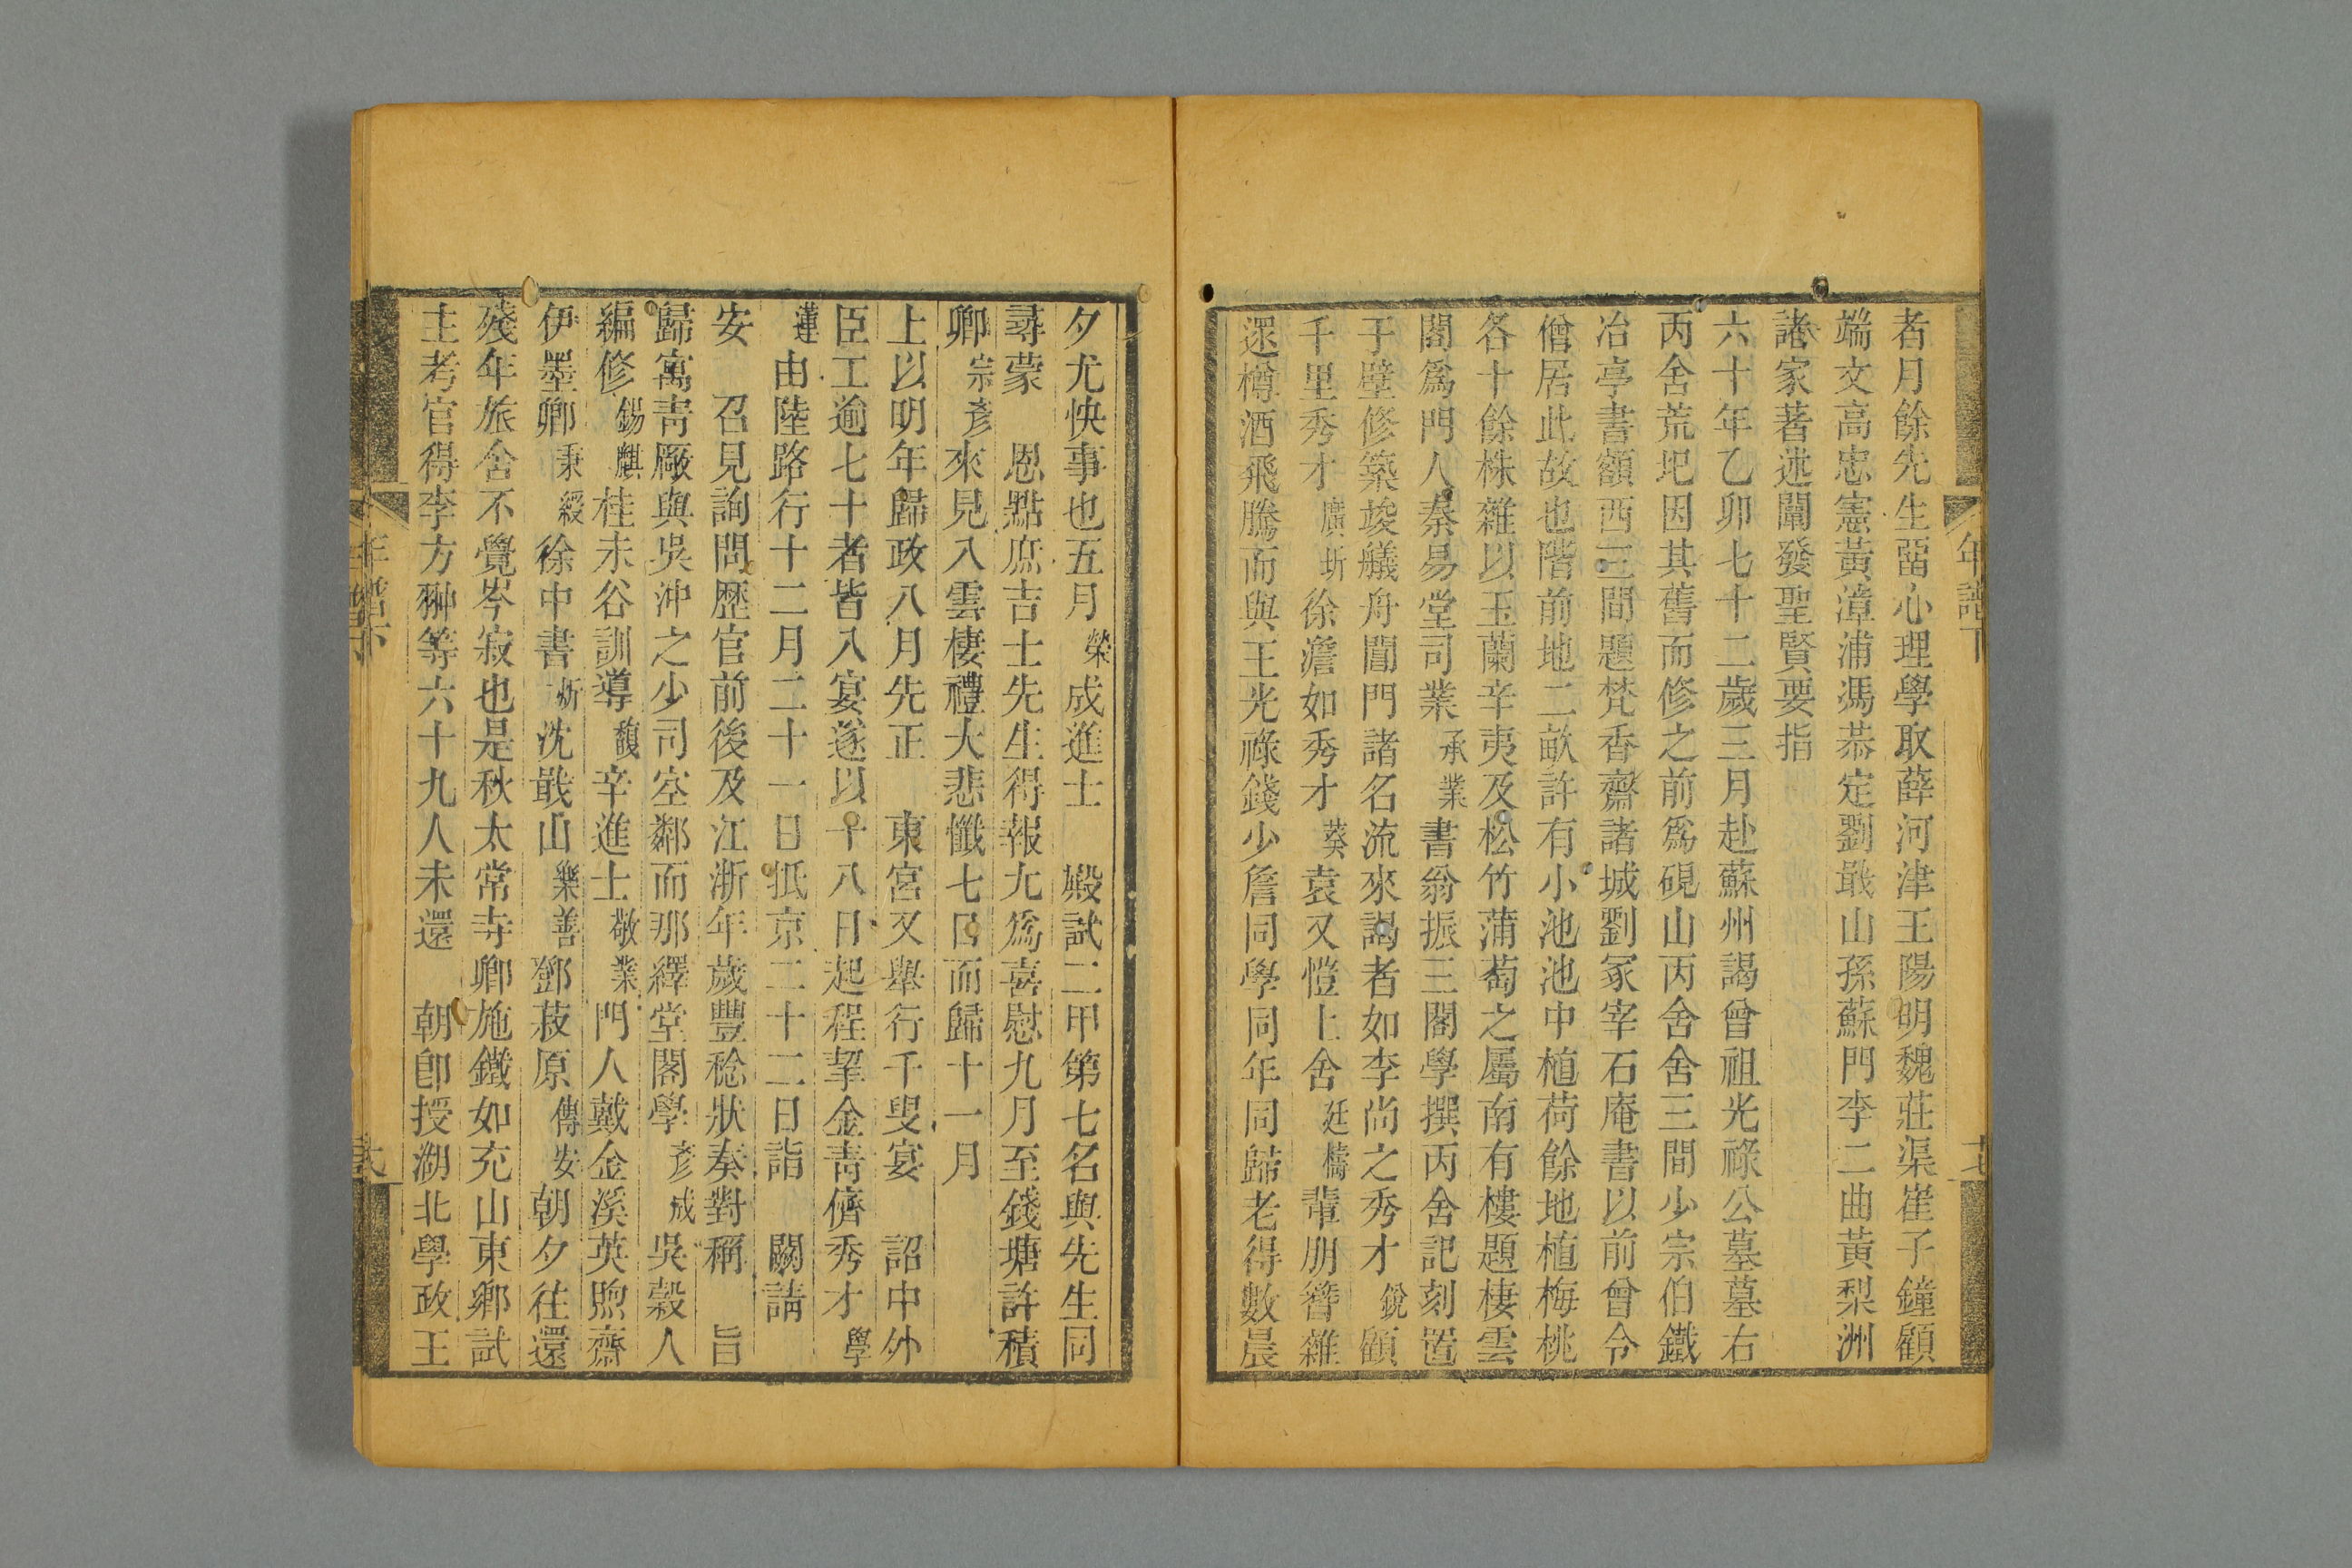 者月餘先生畱心理學取薛河津王陽明魏莊渠崔子鐘顧
端文高忠憲黃漳浦馮恭定劉戢山孫蘇門李二曲黃梨洲
諸家著述闡發聖賢要指
六十年乙卯七十二歲三月赴蘇州謁曾祖光祿公墓墓右
丙舍荒圯因其舊而修之前爲硯山丙舍舍三間少宗伯鐵
冶亭書額西三間題梵香齋諸城劉冢宰石庵書以前曾令
僧居此故也階前地二畝許有小池池中植荷餘地植梅桃
各十餘株雜以玉蘭辛夷及松竹蒲萄之屬南有樓題棲雲
閣爲門人秦易堂司業承業書翁振三閣學撰丙舍記刻置
于壁修築竣艤舟閶門諸名流來謁者如李尚之秀才銳顧
千里秀才廣圻徐澹如秀才葵袁又愷上舍廷檮輩朋簪雜
遝樽酒飛騰而與王光祿錢少詹同學同年同歸老得數晨
年譜下
夕尤快事也五月榮成進士 殿試二甲第七名與先生同
尋蒙 恩點庶吉士先生得報尢爲喜慰九月至錢塘許積
卿宗彥來見入雲棲禮大悲懺七日而歸十一月
上以明年歸政八月先正 東宮又舉行千叟宴 詔中外
臣工逾七十者皆入宴遂以十八日起程挈金青儕秀才學
蓮由陸路行十二月二十一日抵京二十二日詣 闕請
安 召見詢問歷官前後及江浙年歲豐稔狀奏對稱 旨
歸寓靑厰與吳沖之少司空鄰而那繹堂閣學彥成吳榖人
編修錫麒桂未谷訓導馥辛進士敬業門人戴金溪英煦齋
伊墨卿秉綬徐中書炘沈戢山樂善鄧菽原傳安朝夕往還
殘年旅舍不覺岑寂也是秋太常寺卿施鐵如充山東鄉試
主考官得李方翀等六十九人未還 朝卽授湖北學政王
年譜下